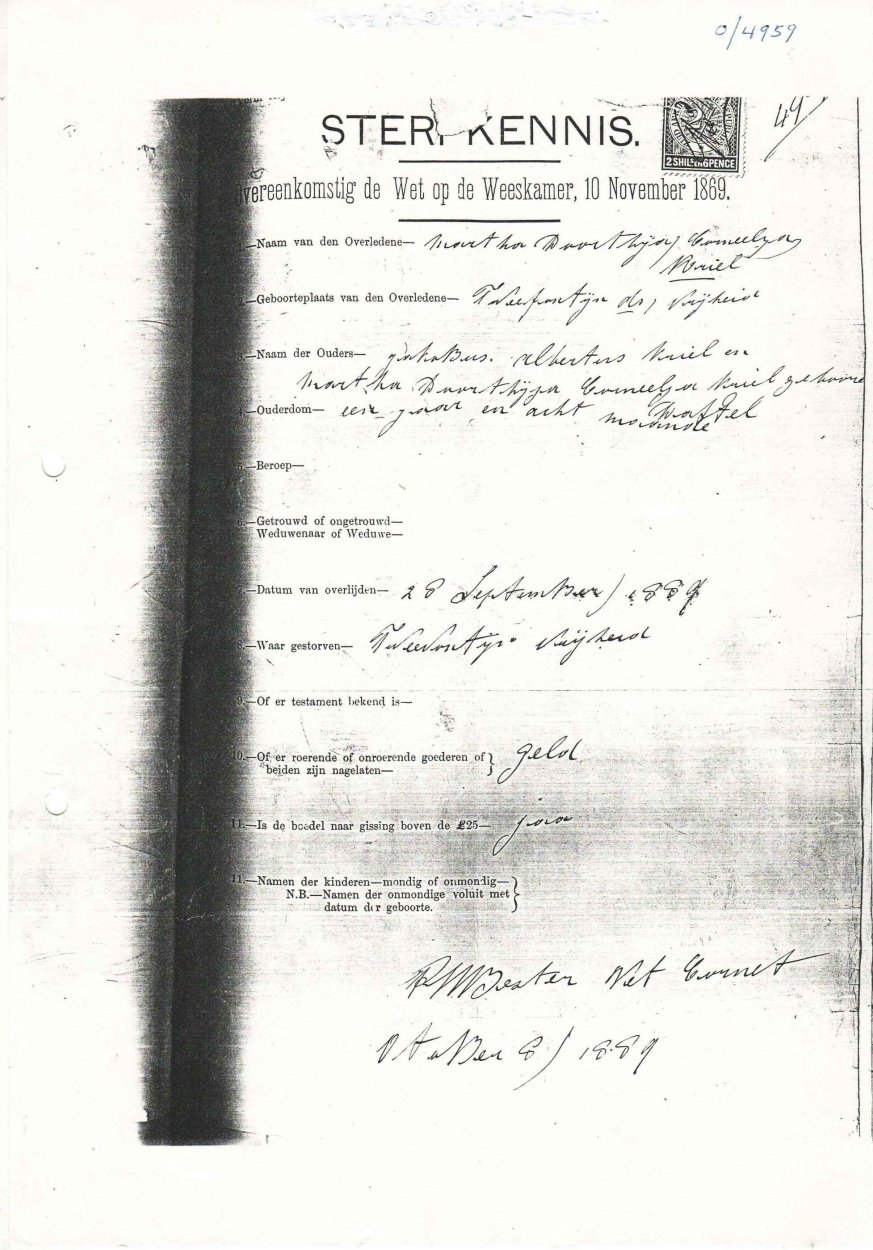 0/4959
49/
STER KENNIS.
2 SHIL 6 PENCE
vereenkomstig de Wet op de Weeskamer, 10 November 1869.
—Naam van den Overledene— Martha Doorthyja Corneelya
Kriel
—Geboorteplaats van den Overledene— Tweefontyn ds, Vrijheid
3.—Naam der Ouders— jakoBus. albertus Kriel en
Martha Doorthijja Corneelja Kriel geboore
4.—Ouderdom— een jaar en acht maande
5.—Beroep—
6.—Getrouwd of ongetrouwd—
Weduwenaar of Weduwe—
7.—Datum van overlijden— 28 September) 1889
8.—Waar gestorven— Tweefontyn Vrijheid
9.—Of er testament bekend is—
10.—Of er roerende of onroerende goederen of
beiden zijn nagelaten— geld
11.—Is de boedel naar gissing boven de £25— jaa
11.—Namen der kinderen—mondig of onmondig—
N.B.—Namen der onmondige voluit met
datum der geboorte.
Bester Vet Cornet
OktoBer 8) 1889